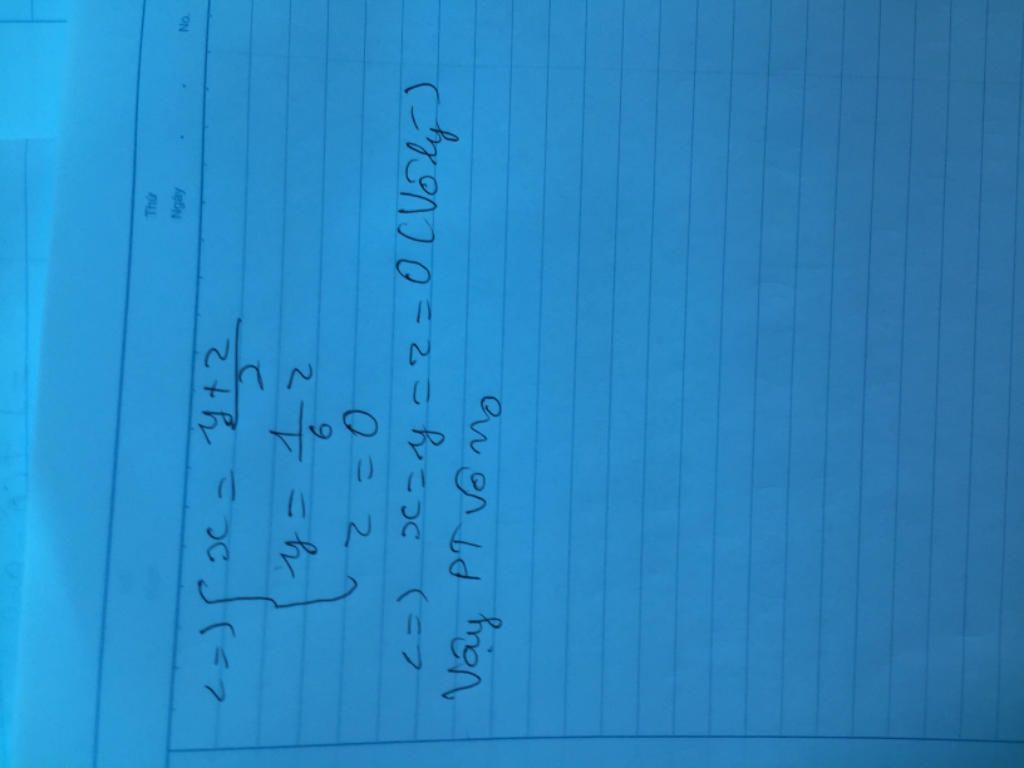 Thứ
Ngày
No.
<=> { x = y+z/2
y = 1/6 z
z = 0
<=> x = y = z = 0 (Vô lý)
Vậy PT vô no